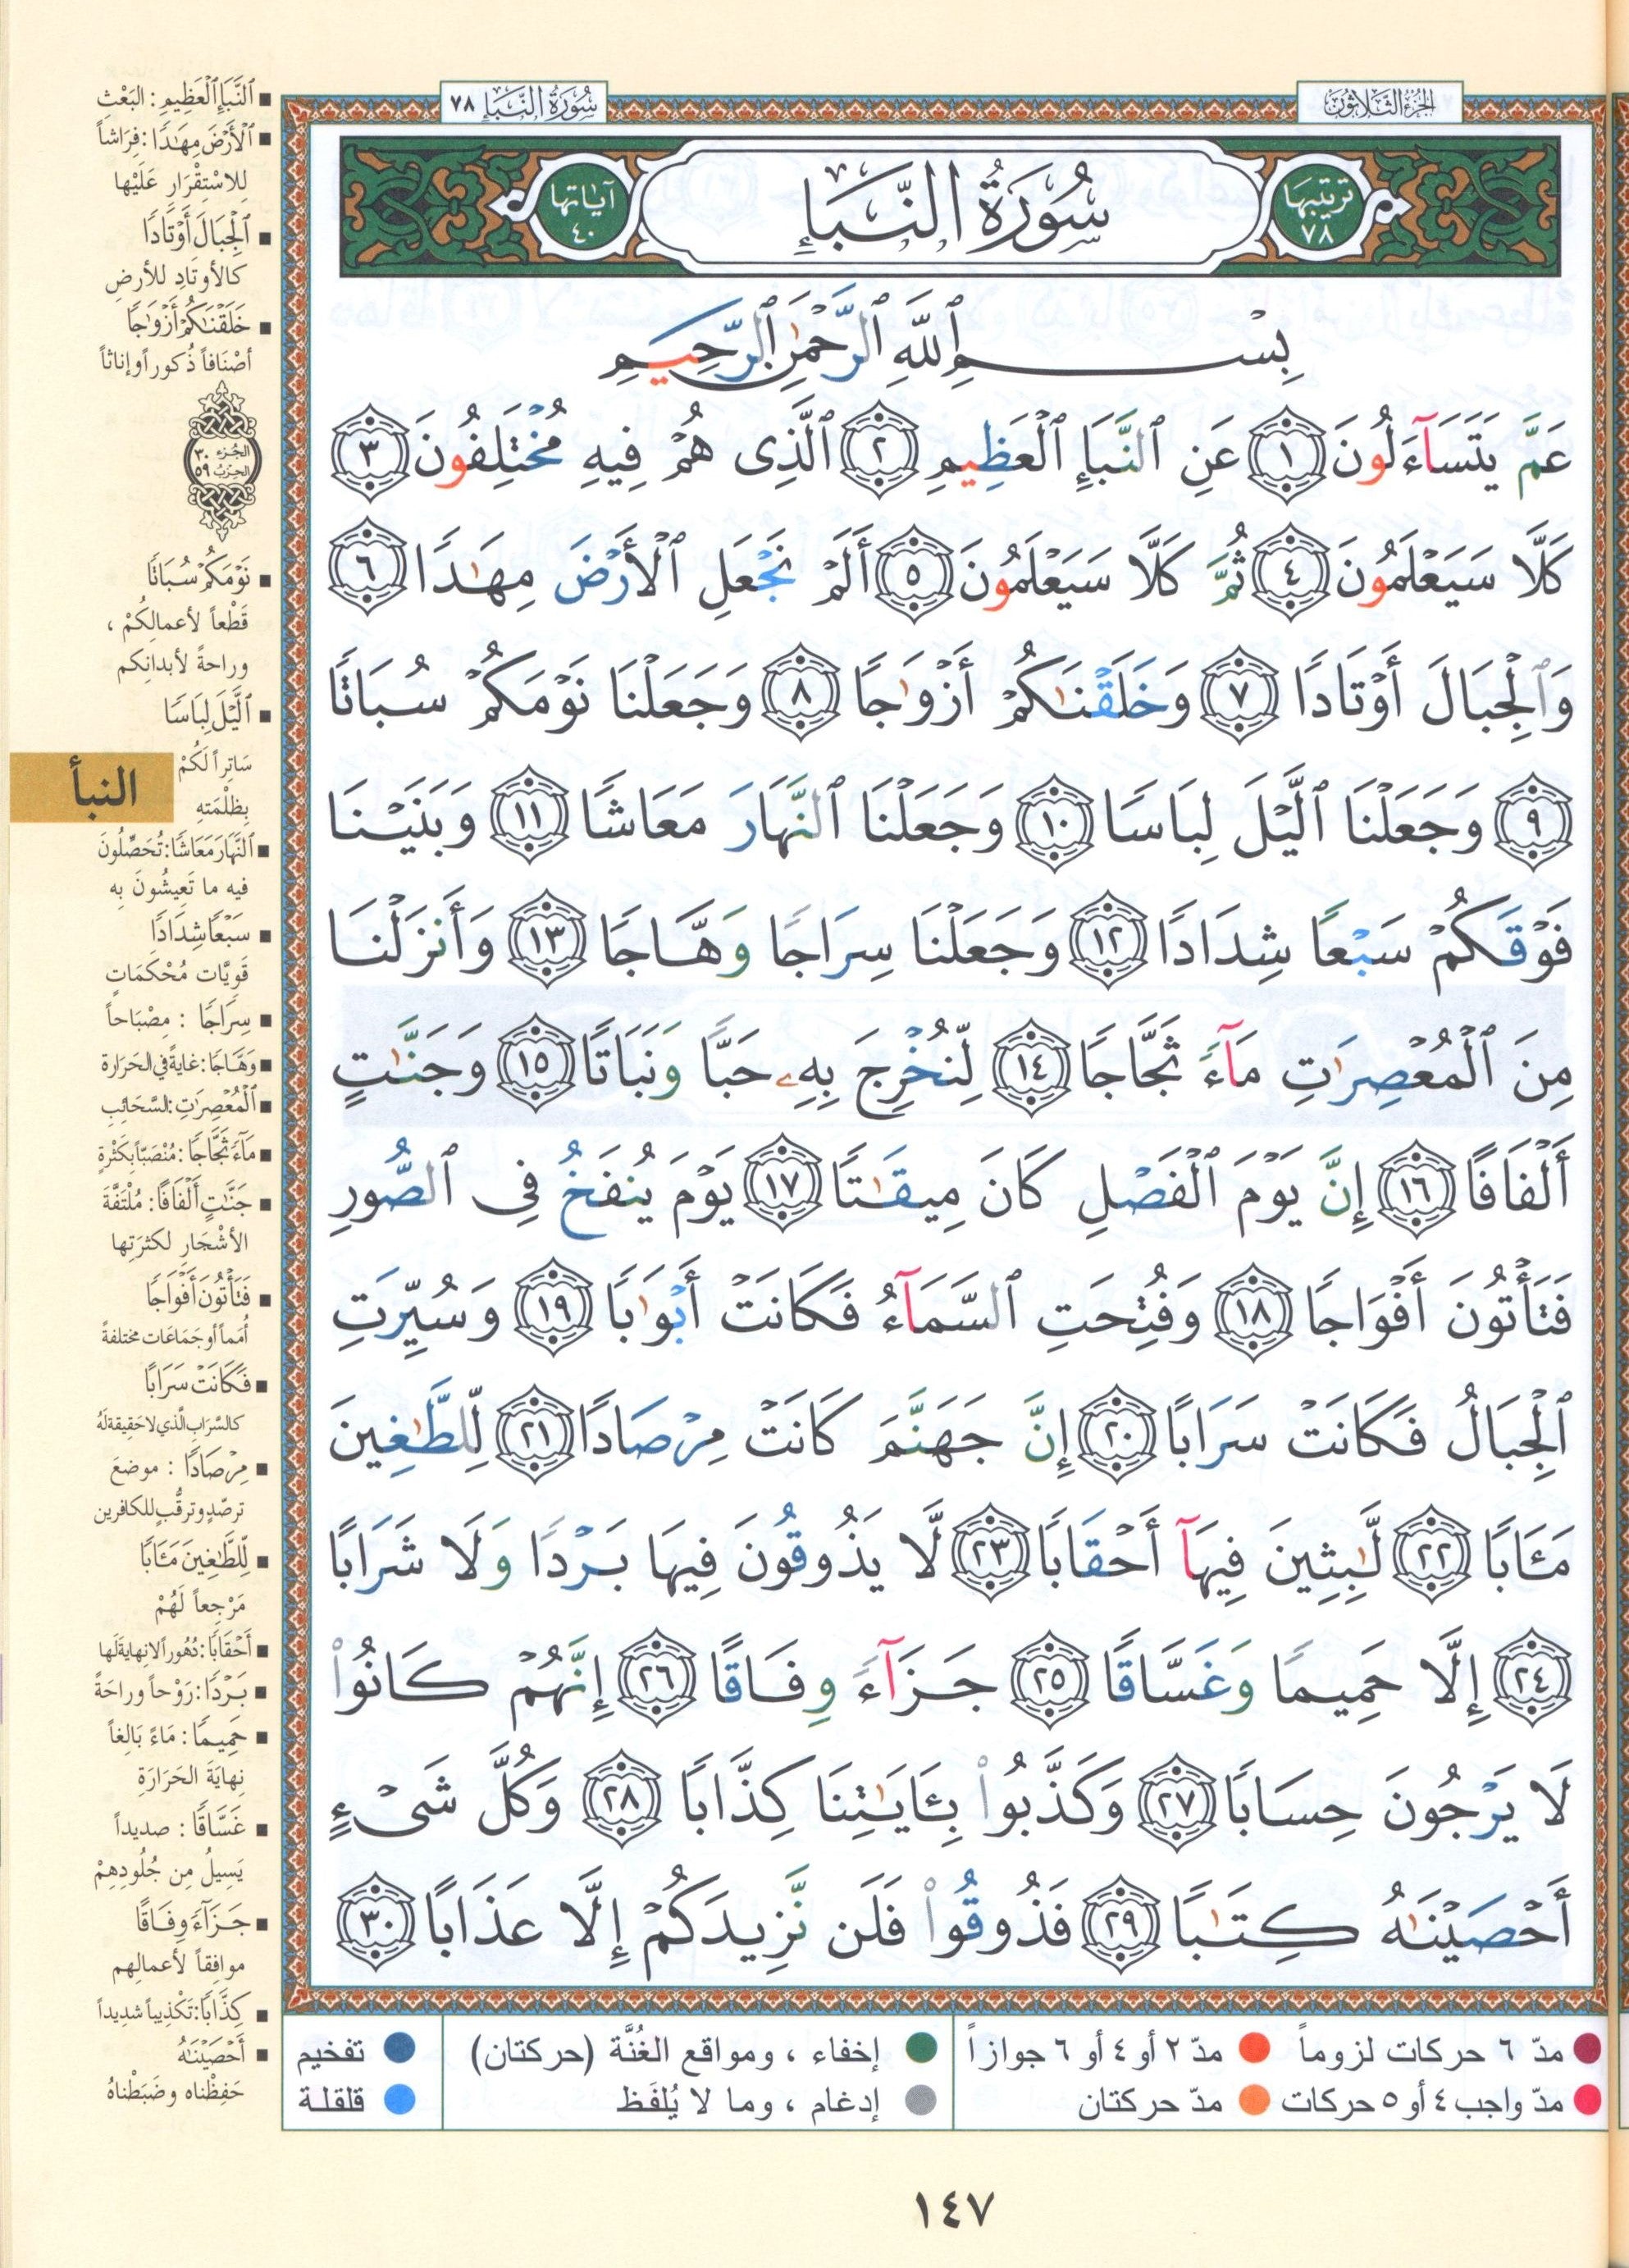 الجزء الثلاثون
سورة النبإ ٧٨
ترتيبها ٧٨
سُورَةُ النَّبَإِ
آياتها ٤٠
بِسْمِ ٱللَّهِ ٱلرَّحْمَٰنِ ٱلرَّحِيمِ
عَمَّ يَتَسَآءَلُونَ ١ عَنِ ٱلنَّبَإِ ٱلْعَظِيمِ ٢ ٱلَّذِى هُمْ فِيهِ مُخْتَلِفُونَ ٣
كَلَّا سَيَعْلَمُونَ ٤ ثُمَّ كَلَّا سَيَعْلَمُونَ ٥ أَلَمْ نَجْعَلِ ٱلْأَرْضَ مِهَٰدًا ٦
وَٱلْجِبَالَ أَوْتَادًا ٧ وَخَلَقْنَٰكُمْ أَزْوَٰجًا ٨ وَجَعَلْنَا نَوْمَكُمْ سُبَاتًا
٩ وَجَعَلْنَا ٱلَّيْلَ لِبَاسًا ١٠ وَجَعَلْنَا ٱلنَّهَارَ مَعَاشًا ١١ وَبَنَيْنَا
فَوْقَكُمْ سَبْعًا شِدَادًا ١٢ وَجَعَلْنَا سِرَاجًا وَهَّاجًا ١٣ وَأَنزَلْنَا
مِنَ ٱلْمُعْصِرَٰتِ مَآءً ثَجَّاجًا ١٤ لِّنُخْرِجَ بِهِۦ حَبًّا وَنَبَاتًا ١٥ وَجَنَّٰتٍ
أَلْفَافًا ١٦ إِنَّ يَوْمَ ٱلْفَصْلِ كَانَ مِيقَٰتًا ١٧ يَوْمَ يُنفَخُ فِى ٱلصُّورِ
فَتَأْتُونَ أَفْوَاجًا ١٨ وَفُتِحَتِ ٱلسَّمَآءُ فَكَانَتْ أَبْوَٰبًا ١٩ وَسُيِّرَتِ
ٱلْجِبَالُ فَكَانَتْ سَرَابًا ٢٠ إِنَّ جَهَنَّمَ كَانَتْ مِرْصَادًا ٢١ لِّلطَّٰغِينَ
مَـَٔابًا ٢٢ لَّٰبِثِينَ فِيهَآ أَحْقَابًا ٢٣ لَّا يَذُوقُونَ فِيهَا بَرْدًا وَلَا شَرَابًا
٢٤ إِلَّا حَمِيمًا وَغَسَّاقًا ٢٥ جَزَآءً وِفَاقًا ٢٦ إِنَّهُمْ كَانُوا۟
لَا يَرْجُونَ حِسَابًا ٢٧ وَكَذَّبُوا۟ بِـَٔايَٰتِنَا كِذَّابًا ٢٨ وَكُلَّ شَىْءٍ
أَحْصَيْنَٰهُ كِتَٰبًا ٢٩ فَذُوقُوا۟ فَلَن نَّزِيدَكُمْ إِلَّا عَذَابًا ٣٠
■ ٱلنَّبَإِ ٱلْعَظِيمِ : البَعْثِ
■ ٱلْأَرْضَ مِهَٰدًا : فِرَاشاً
لِلاسْتِقْرَارِ عَلَيْها
■ ٱلْجِبَالَ أَوْتَادًا
كالأوتَادِ للأرضِ
■ خَلَقْنَٰكُمْ أَزْوَٰجًا
أصْنَافاً ذُكوراً وإناثاً
الجزء ٣٠
الحزب ٥٩
■ نَوْمَكُمْ سُبَاتًا
قَطْعاً لأعمالِكُمْ ،
وراحةً لأبدانِكم
■ ٱلَّيْلَ لِبَاسًا
سَاتِراً لَكُمْ
بِظلْمَتِهِ
النبأ
■ ٱلنَّهَارَ مَعَاشًا : تُحَصِّلُونَ
فيه ما تَعِيشُونَ بِه
■ سَبْعًا شِدَادًا
قَوِيَّات مُحْكَمَاتٍ
■ سِرَاجًا : مِصْبَاحاً
■ وَهَّاجًا : غايةً في الحَرَارة
■ ٱلْمُعْصِرَٰتِ : السَّحَائِبِ
■ مَآءً ثَجَّاجًا : مُنْصَبّاً بِكَثْرةٍ
■ جَنَّٰتٍ أَلْفَافًا : مُلْتَفَّةَ
الأشْجَارِ لكثرَتِها
■ فَتَأْتُونَ أَفْوَاجًا
أُمَماً أو جَمَاعَات مختلفةً
■ فَكَانَتْ سَرَابًا
كالسَّرَابِ الَّذي لا حَقِيقةَ لَهُ
■ مِرْصَادًا : موضعَ
ترصّدٍ وترقُّبٍ للكافرين
■ لِّلطَّٰغِينَ مَـَٔابًا
مَرْجِعاً لَهُمْ
■ أَحْقَابًا : دُهُوراً لا نِهايةَ لَها
■ بَرْدًا : رَوْحاً وراحَةً
■ حَمِيمًا : مَاءً بَالِغاً
نِهايَةَ الحَرَارَةِ
■ غَسَّاقًا : صديداً
يَسِيلُ مِن جُلُودِهِمْ
■ جَزَآءً وِفَاقًا
موافِقاً لأعمالِهم
■ كِذَّابًا : تَكْذِيباً شدِيداً
■ أَحْصَيْنَٰهُ
حَفِظْناه وضَبَطْناهُ
مدّ ٦ حركات لزوماً ● مدّ ٢ أو ٤ أو ٦ جوازاً ● إخفاء ، ومواقع الغُنَّة (حركتان) ● تفخيم
مدّ واجب ٤ أو ٥ حركات ● مدّ حركتان ● إدغام ، وما لا يُلفَظ ● قلقلة
١٤٧